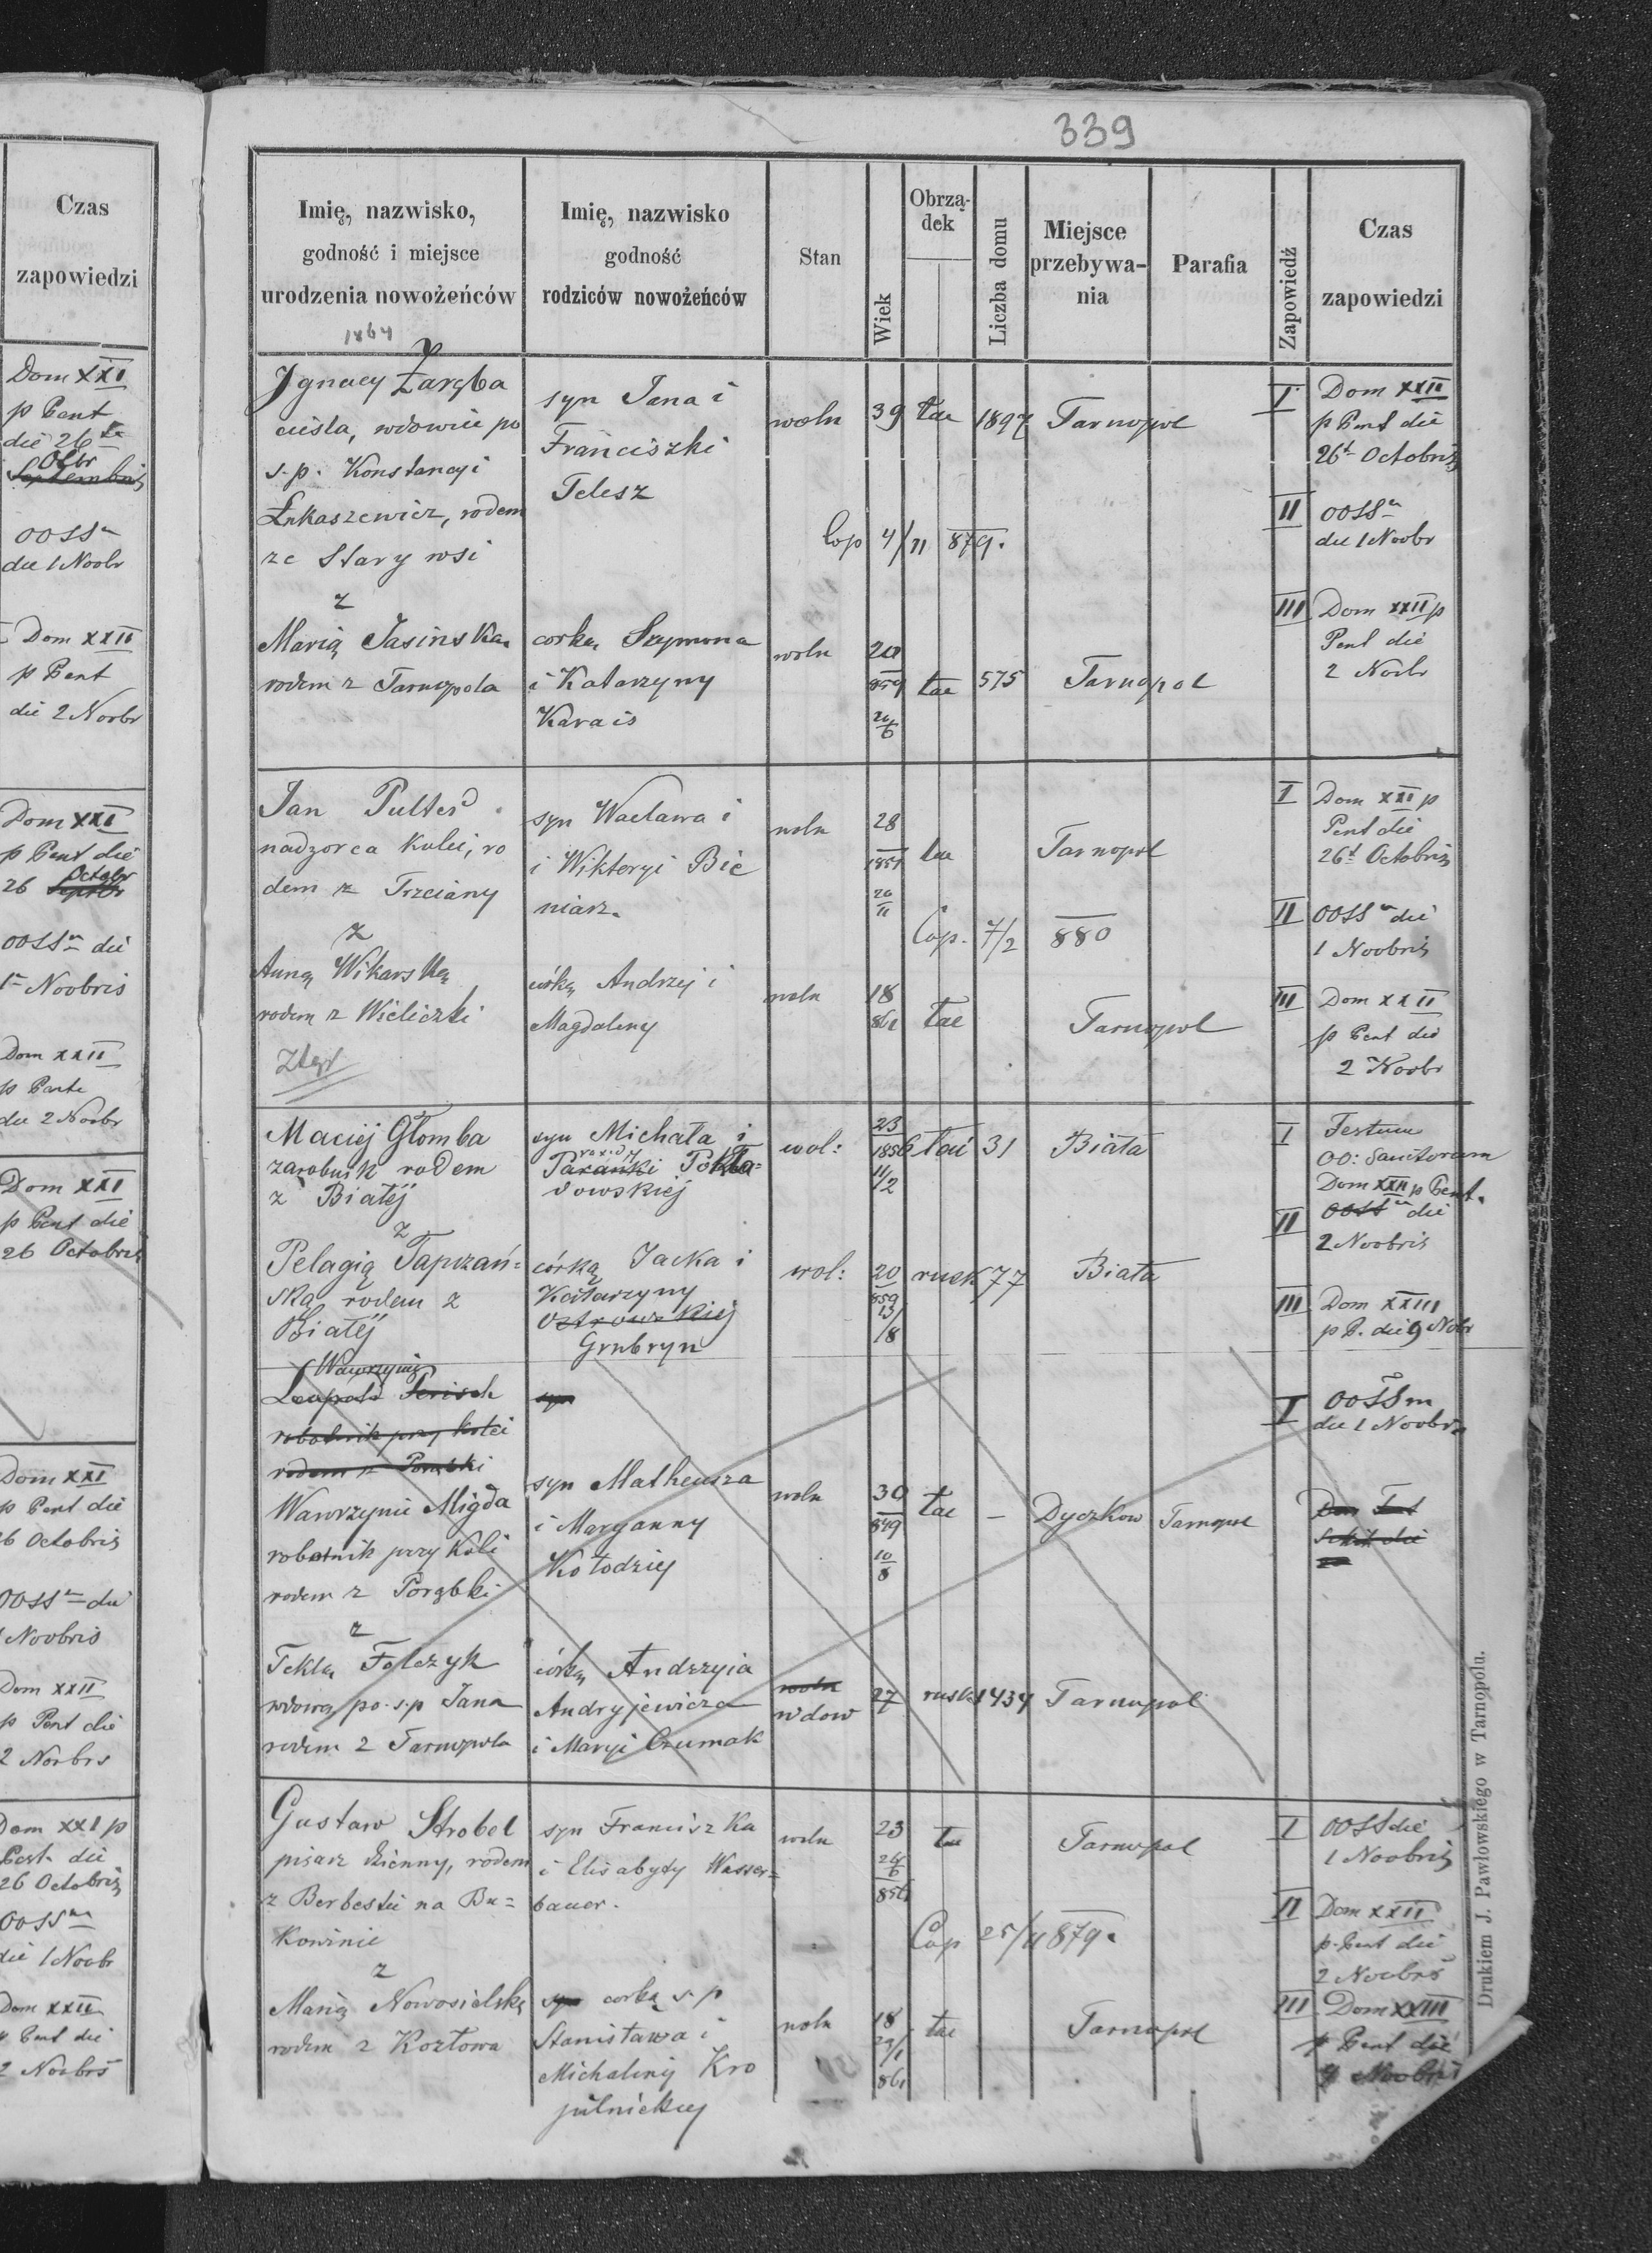 Czas
zapowiedzi
Dom XXI
p Pent
die 26ta
Octbr
Septembris
OOSSm
die 1 Noobr
Dom XXII
p Pent
die 2 Noobr
Dom XXI
p Pent die
Octobr
26 Septbr
OOSSm die
1 Noobris
Dom XXII
p Pent
die 2 Noobr
Dom XXI
p Pent die
26 Octobris
Dom XXI
p Pent die
26 Octobris
OOSSm die
1 Noobris
Dom XXII
p Pent die
2 Noobrs
Dom XXI p
Pent die
26 Octobris
OOSSm
die 1 Noobr
Dom XXII
p Pent die
2 Noobrs
339
Imię, nazwisko, godność i miejsce urodzenia nowożeńców
Imię, nazwisko godność rodziców nowożeńców
Stan
Wiek
Obrzą-
dek
Liczba domu
Miejsce
przebywa-
nia
Parafia
Zapowiedź
Czas
zapowiedzi
1864
Ignacy Zaręba
cieśla, wdowiec po
s.p. Konstancyi
Łukaszewicz, rodem
ze Stary wsi
syn Jana i
Franciszki
Telesz
woln 39 łac 1897 Tarnopol
Cop 4/11 879.
I Dom XXII
p Pent die
26t Octobris
II OOSSm
die 1 Noobr
III Dom XXII p
Pent die
2 Noobr
z
Marią Jasinską
rodem z Tarnopola
corką Szymona
i Katarzyny
Karais
woln 20
859
20/6
łac 575 Tarnopol
Jan Pulter
nadzorca kolei, ro
dem z Trzciany
syn Wacława i
i Wiktoryi Bie
niarz.
woln 28
1851
20/11
łac Tarnopol
Cop. 7/2 880
I Dom XXI p
Pent die
26t Octobris
II OOSSm die
1 Noobris
III Dom XXII
p Pent die
2 Noobr
z
Anną Wikarską
rodem z Wieliczki
córką Andrzej i
Magdaleny
woln 18
861
łac Tarnopol
Maciej Głomba
zarobnik rodem
z Białej
syn Michała i
Paranki Pokła=
dowskiej
wol: 23
1856
11/2
łaci 31 Biała
I Festum
OO: Sanctorum
Dom XXII p Pent.
II OOSSm die
2 Noobris
III Dom XXIII
p P. die 9 Nobr
z
Pelagią Tapczań=
ską rodem z
Białej
córką Jacka i
Katarzyny
Ostrowskiej
Grubryn
wol: 20
859
13/8
rusk 77 Biała
Wawrzyniec
Leopold
robotnik przy kolei
rodem z Porąbki
syn
I OOSSm
die 1 Noobr.
Wawrzyniec Migda
robotnik przy Koli
rodem z Porąbki
syn Matheusza
i Maryanny
Kołodziej
woln 30
849
10/8
łac — Dyczkow Tarnopol
z
Teklą Folczyk
wdową po s.p Jana
rodem z Tarnopola
córką Andrzyja
Andryjewicza
i Maryi Czumak
woln
wdow 27 rusk 1434 Tarnopol
Gustaw Strobel
pisarz dzienny, rodem
z Berbestie na Bu=
kowinie
syn Franciszka
i Elisabyty Wasser=
bauer.
woln 23
24/6
856
łac Tarnopol
Cap 25/11 879.
I OOSS die
1 Noobris
II Dom XXII
p. Pent die
2 Noobrs
III Dom XXIII
p Pent die
9 Noobris
z
Marią Nowosielską
rodem z Kozłowa
syn corką s.p
Stanisława i
Michaliny Kro
pilnickiey
woln 18
29/1
861
łac Tarnopol
Drukiem J. Pawłowskiego w Tarnopolu.